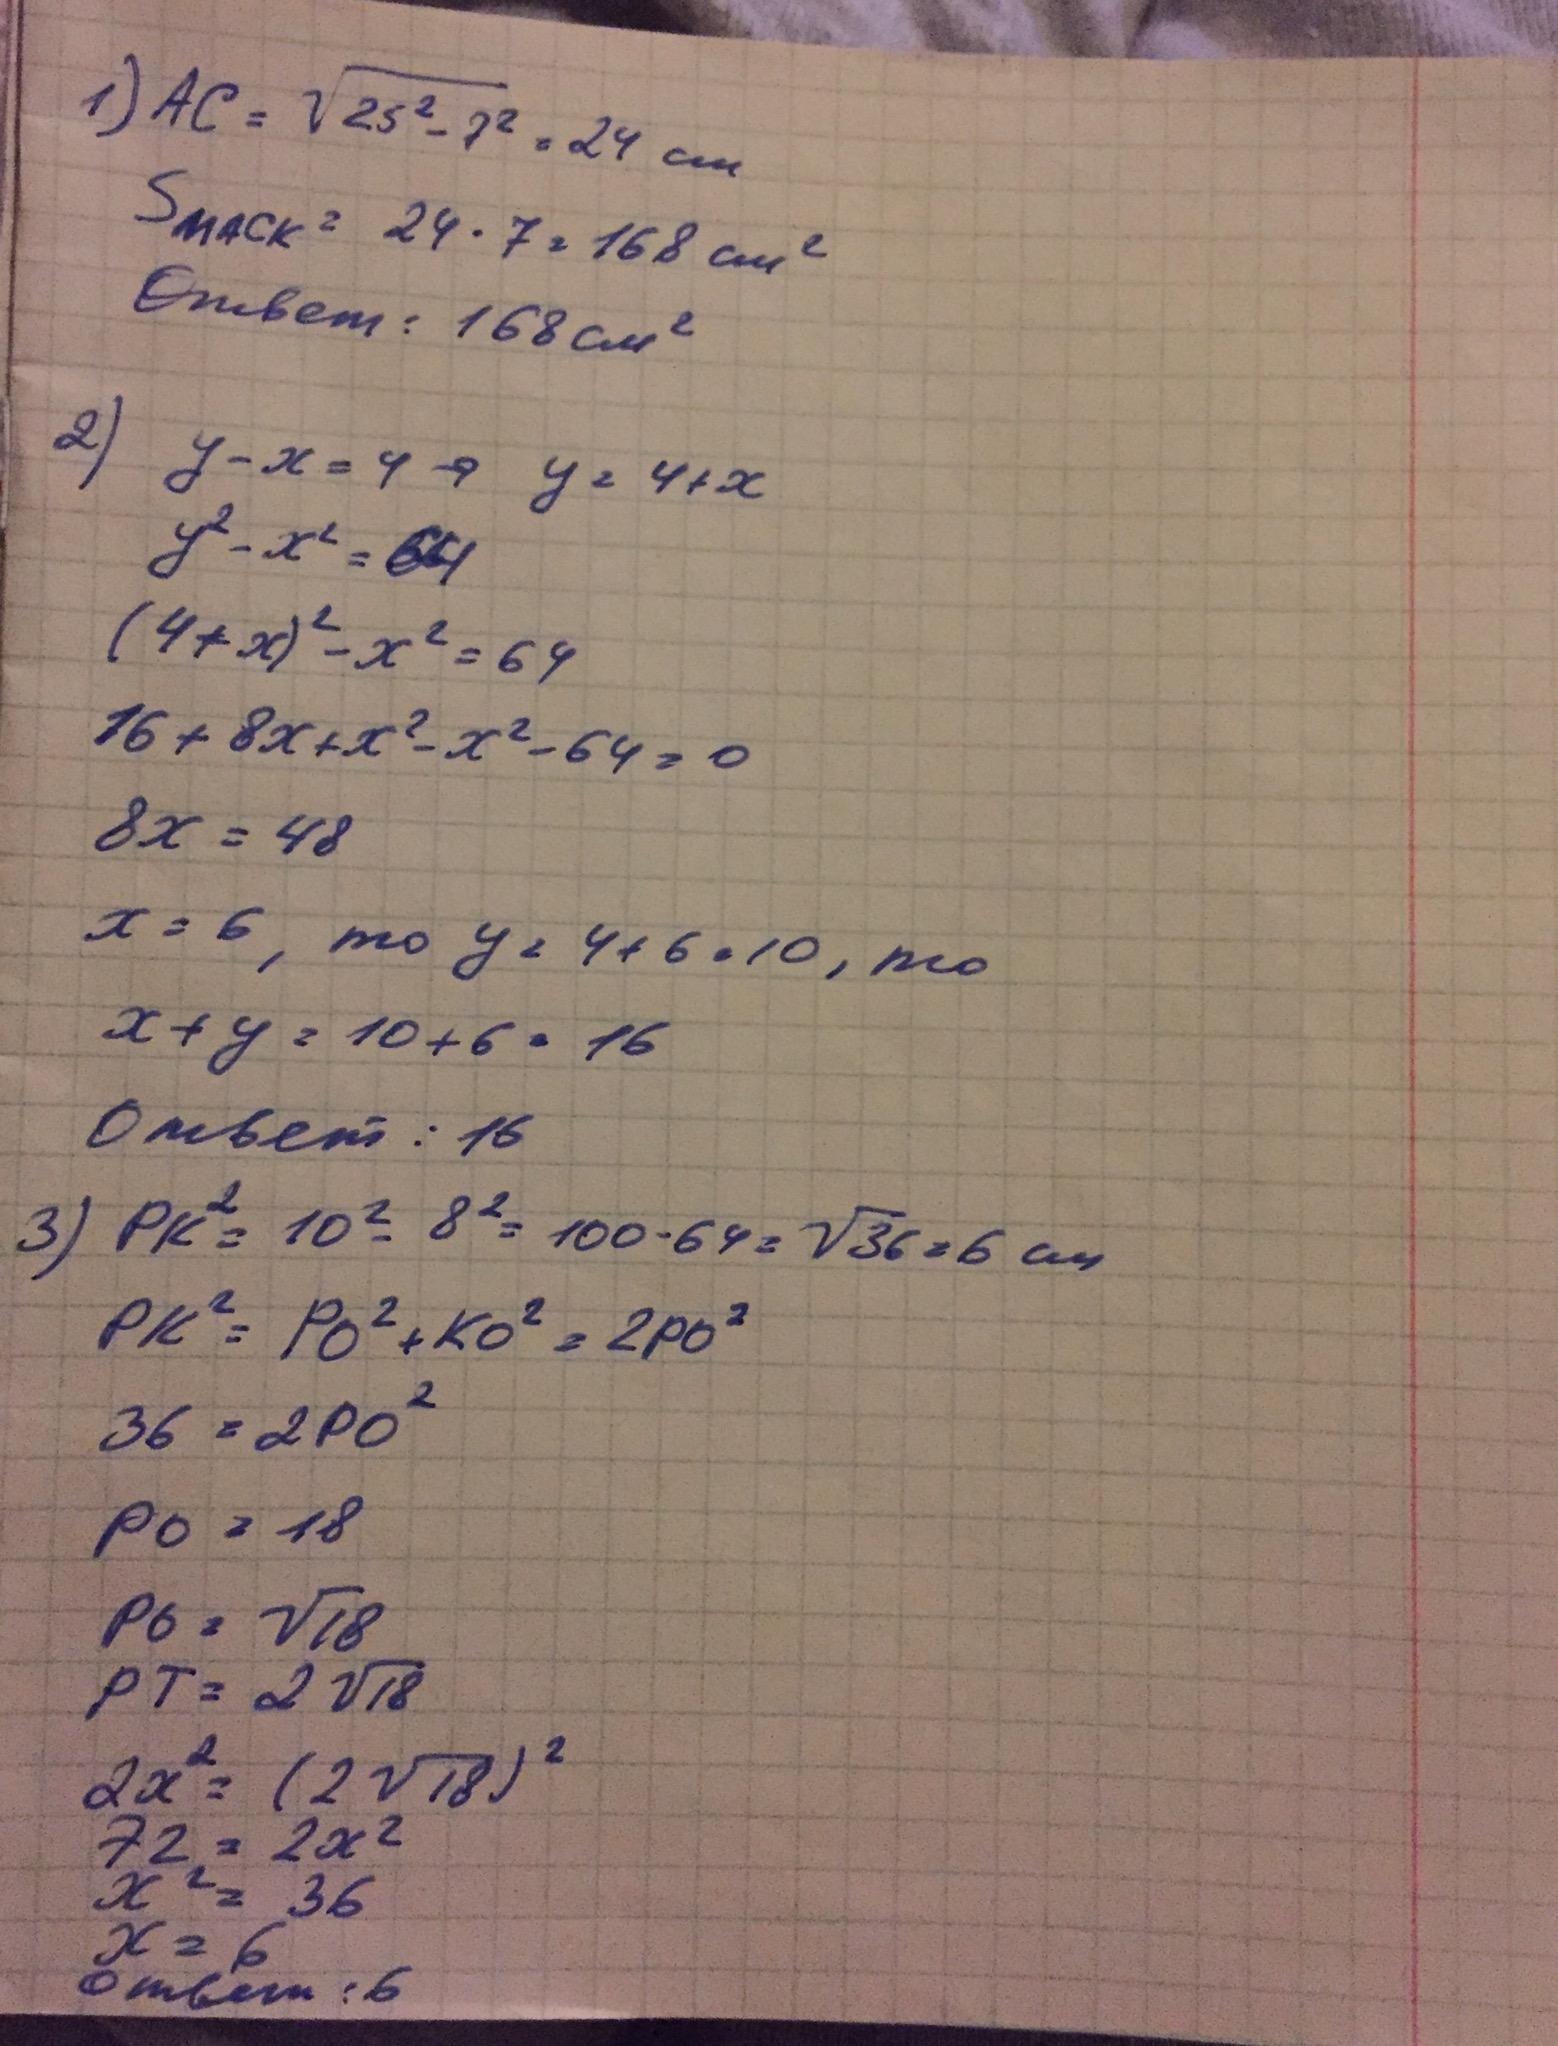 1) AC = √25² - 7² = 24 см
Sмаск = 24 · 7 = 168 см²
Ответ: 168 см²
2) y - x = 4 → y = 4 + x
y² - x² = 64
(4 + x)² - x² = 64
16 + 8x + x² - x² - 64 = 0
8x = 48
x = 6, то y = 4 + 6 = 10, то
x + y = 10 + 6 = 16
Ответ: 16
3) PK² = 10² - 8² = 100 - 64 = √36 = 6 см
PK² = PO² + KO² = 2PO²
36 = 2PO²
PO = 18
PO = √18
PT = 2√18
2x² = (2√18)²
72 = 2x²
x² = 36
x = 6
Ответ: 6